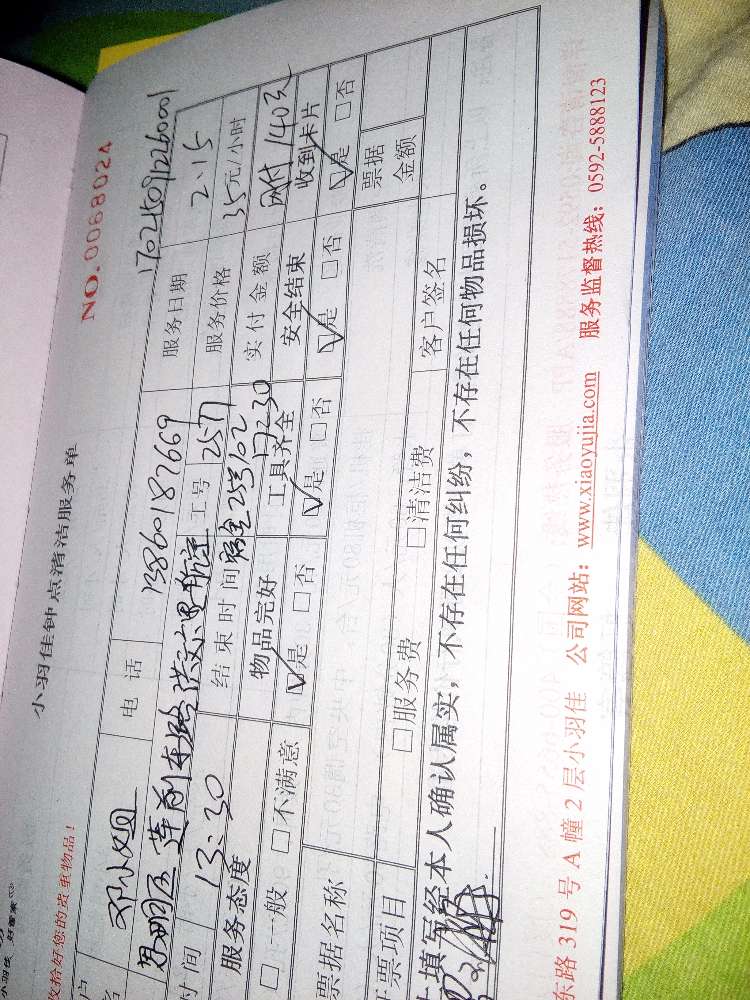 小羽佳钟点清洁服务单
NO. 0068024
收拾好您的贵重物品！
邓小姐 电话 13860187669
服务日期 2.15
莲前东路 工号 2577 服务价格 35元/小时
时间 13:30 结束时间 17:30 实付金额 网付140元
服务态度 物品完好 工具齐全 安全结束 收到卡片
□一般 □不满意 ☑是 □否 ☑是 □否 ☑是 □否 ☑是 □否
票据名称 票据金额
票项目 □服务费 □清洁费 客户签名
填写经本人确认属实，不存在任何纠纷，不存在任何物品损坏。
东路 319 号 A 幢 2 层小羽佳 公司网站：www.xiaoyujia.com 服务监督热线：0592-5888123